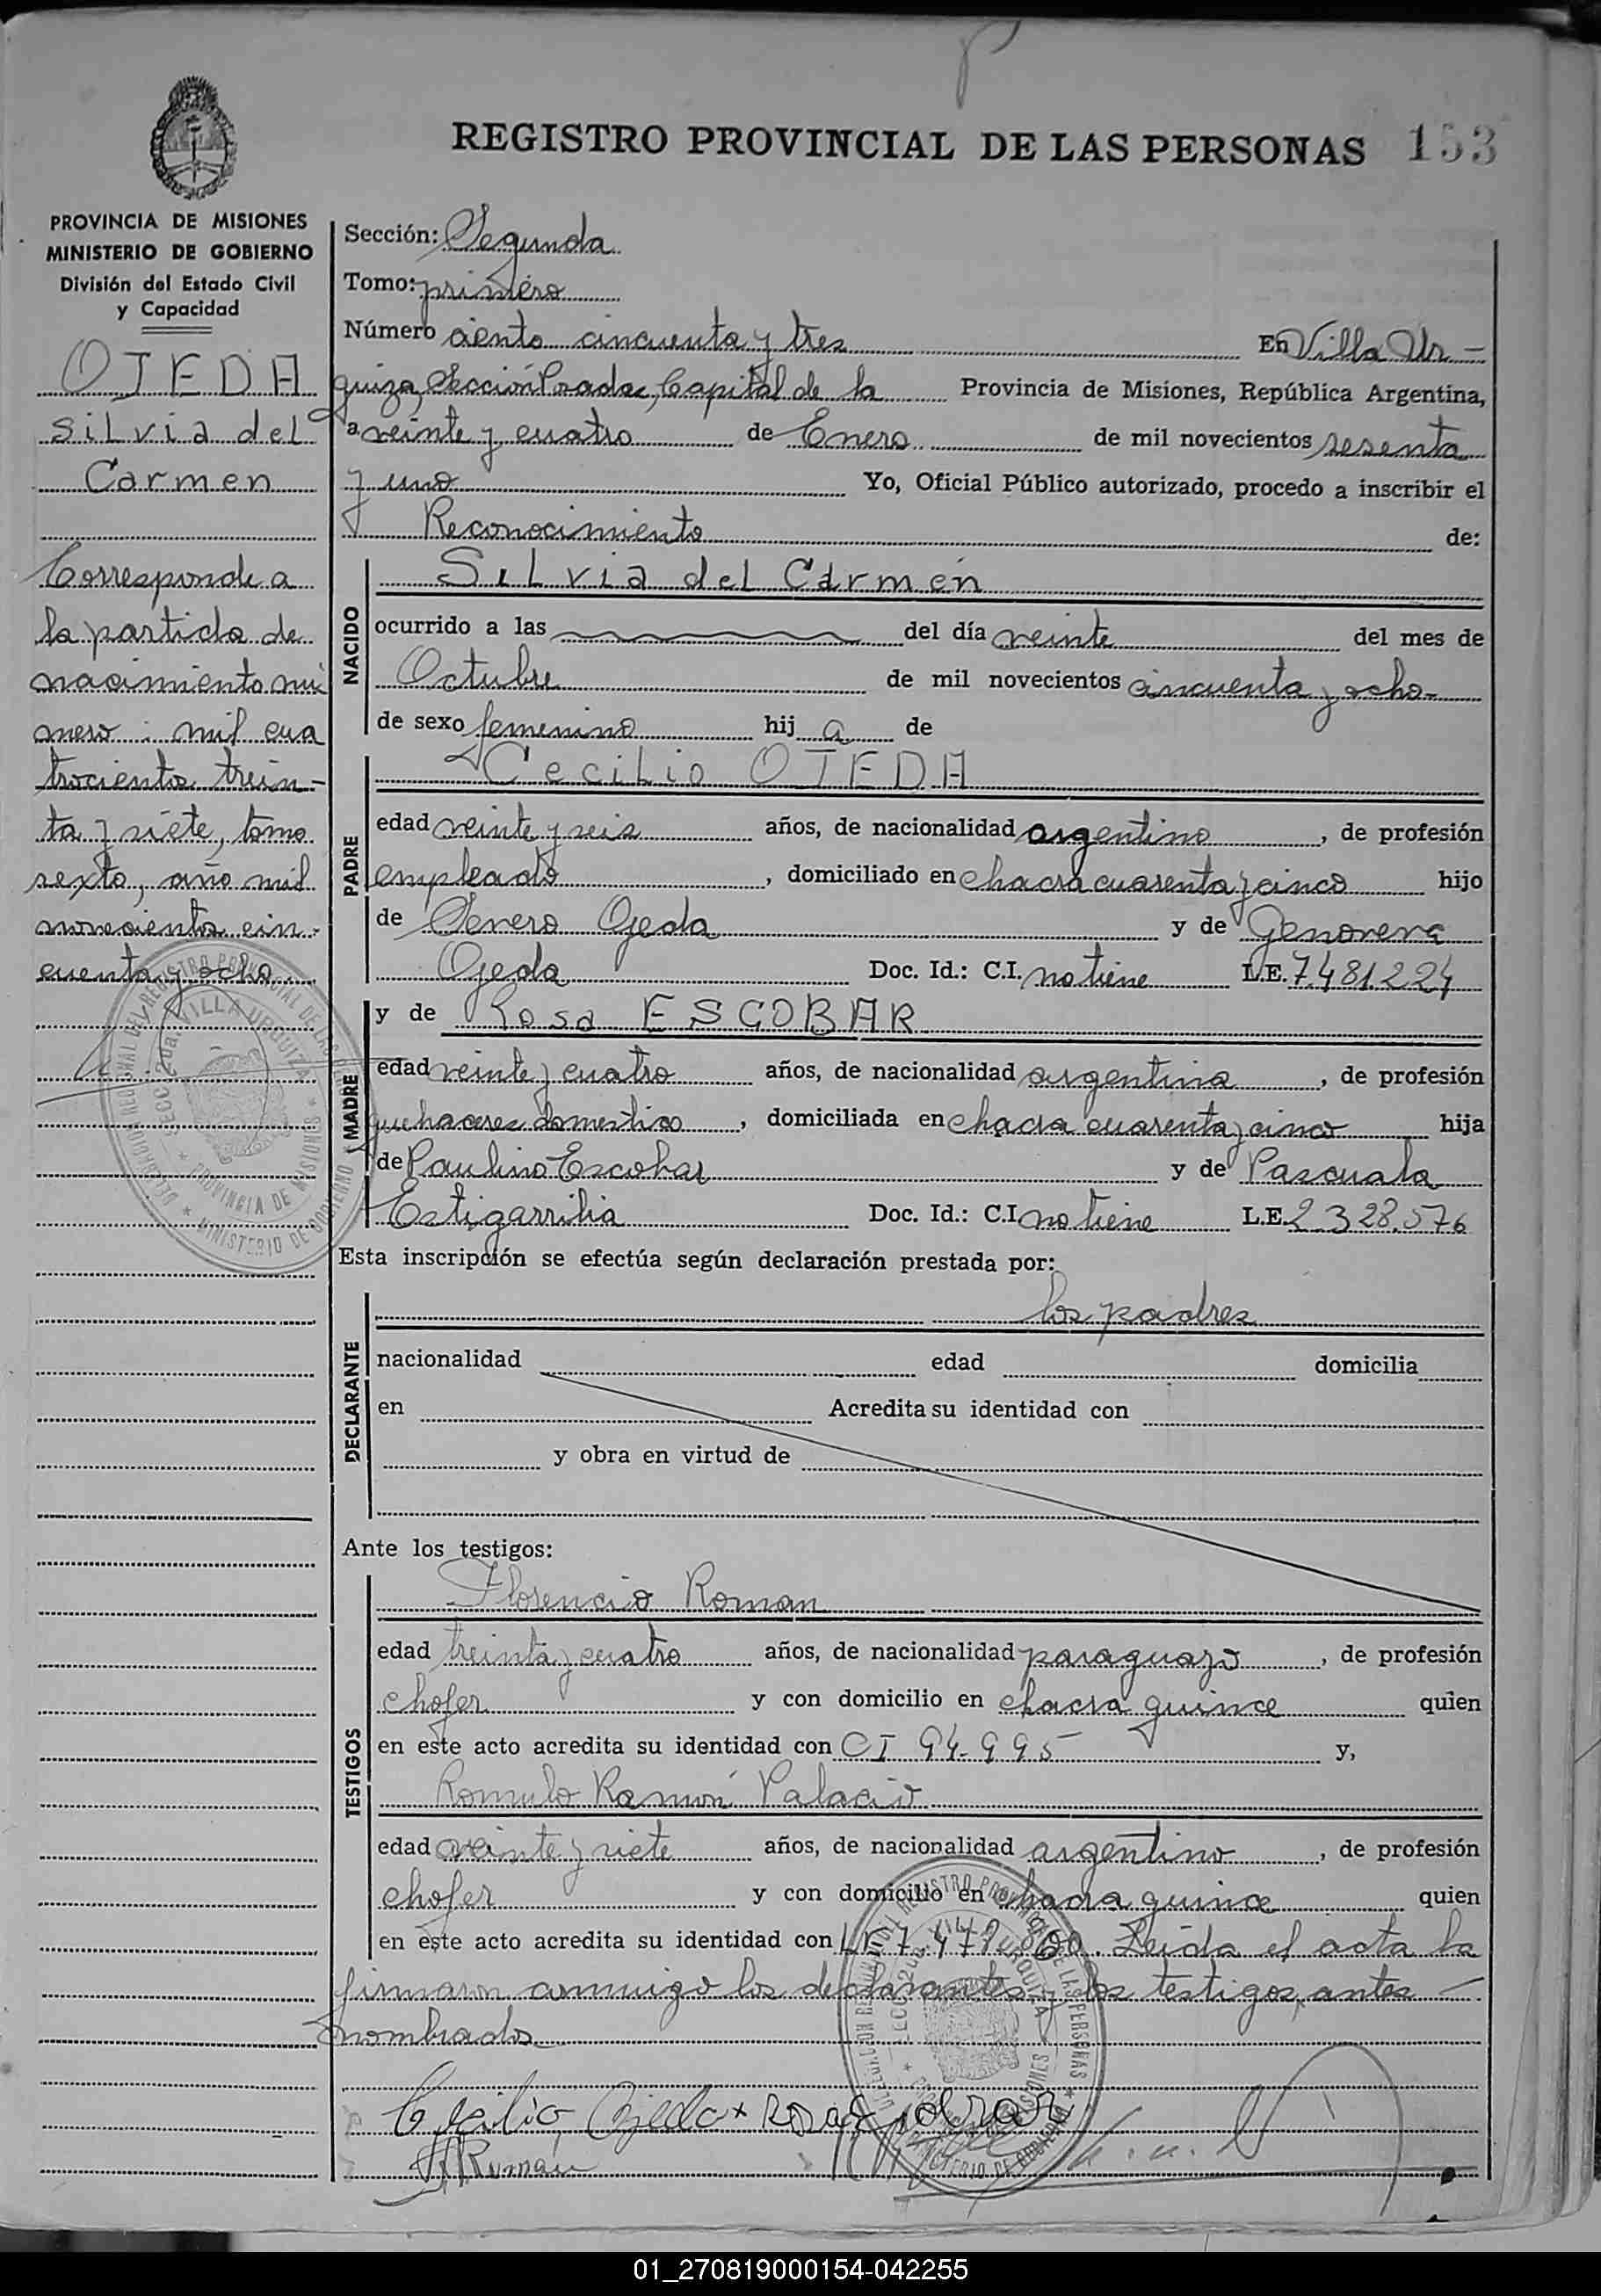 REGISTRO PROVINCIAL DE LAS PERSONAS 153
PROVINCIA DE MISIONES
MINISTERIO DE GOBIERNO
División del Estado Civil
y Capacidad
OJEDA
Silvia del
Carmen
Corresponde a
la partida de
nacimiento nú
mero : mil cua
trocientos trein-
ta y siete, tomo
sexto, año mil
novecientos cin-
cuenta y ocho
Sección: Segunda
Tomo: primero
Número ciento cincuenta y tres En Villa Ur-
quiza, Sección Posadas, Capital de la Provincia de Misiones, República Argentina,
a veinte y cuatro de Enero de mil novecientos sesenta
y uno Yo, Oficial Público autorizado, procedo a inscribir el
Reconocimiento de:
NACIDO
Silvia del Carmen
ocurrido a las del día veinte del mes de
Octubre de mil novecientos cincuenta y ocho-
de sexo femenino hij a de
PADRE
Cecilio OJEDA
edad veinte y seis años, de nacionalidad argentino, de profesión
empleado, domiciliado en chacra cuarenta y cinco hijo
de Genero Ojeda y de Genoveva
Ojeda Doc. Id.: C.I. no tiene L.E. 7.481.224
MADRE
y de Rosa ESCOBAR
edad veinte y cuatro años, de nacionalidad argentina, de profesión
quehaceres domestico, domiciliada en chacra cuarenta y cinco hija
de Paulino Escobar y de Pascuala
Estigarribia Doc. Id.: C.I. no tiene L.E. 2.328.576
Esta inscripción se efectúa según declaración prestada por:
DECLARANTE
los padres
nacionalidad edad domicilia
en Acredita su identidad con
y obra en virtud de
Ante los testigos:
TESTIGOS
Florencio Roman
edad treinta y cuatro años, de nacionalidad paraguayo, de profesión
chofer y con domicilio en chacra quince quien
en este acto acredita su identidad con CI 94.995 y,
Romulo Ramón Palacio
edad veinte y siete años, de nacionalidad argentino, de profesión
chofer y con domicilio en chacra quince quien
en este acto acredita su identidad con Leida el acta la
firmaron conmigo los declarantes y los testigos antes-
nombrados
Cecilio Ojeda x Rosa Escobar
Román
01_270819000154-042255